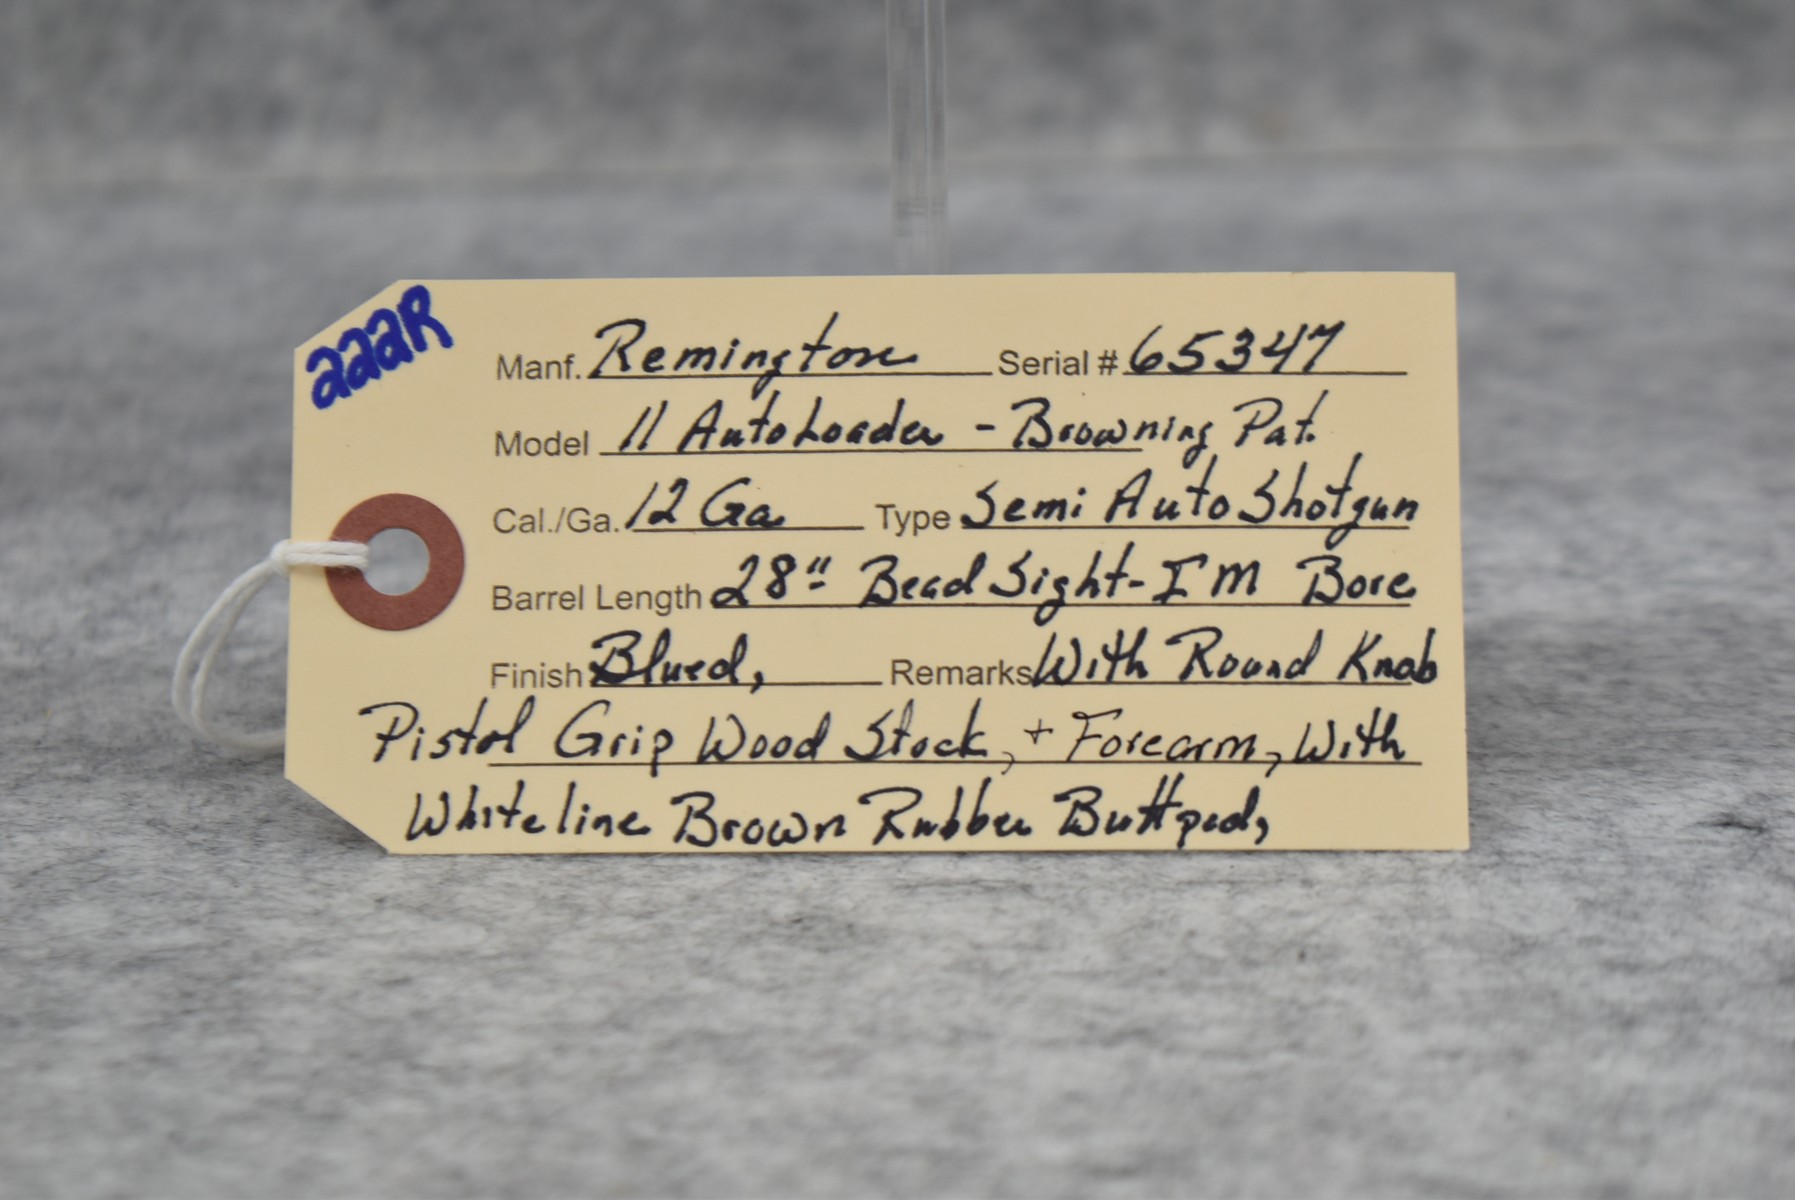 222R
Manf. Remington Serial # 65347
Model 11 AutoLoader - Browning Pat.
Cal./Ga. 12 Ga. Type Semi Auto Shotgun
Barrel Length 28" Bead Sight - IM Bore
Finish Blued, Remarks With Round Knob
Pistol Grip Wood Stock, + Forearm, With
Whiteline Brown Rubber Buttpad,